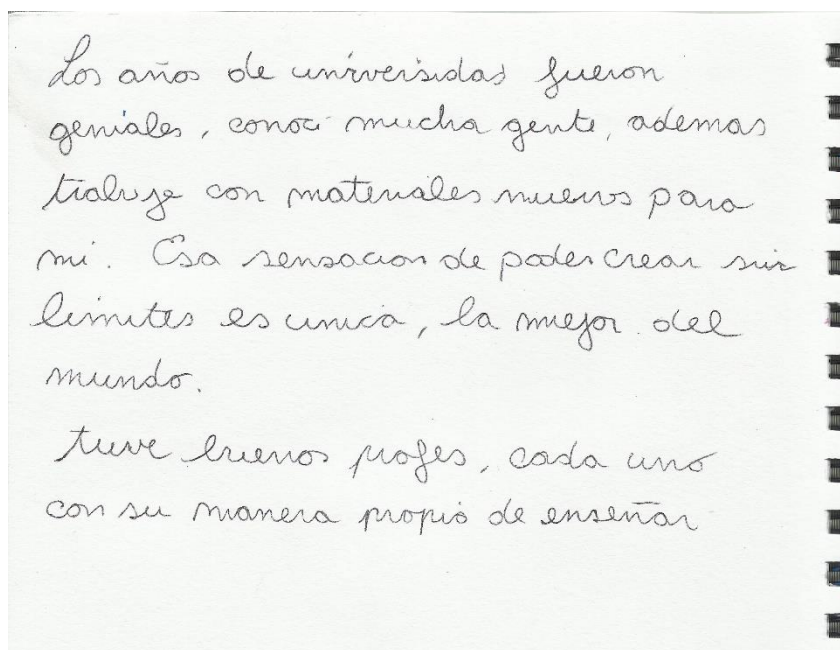 Los años de universidad fueron
geniales, conocí mucha gente, ademas
trabaje con materiales nuevos para
mi. Esa sensacion de poder crear sin
limites es unica, la mejor del
mundo.
Tuve buenos profes, cada uno
con su manera propia de enseñar